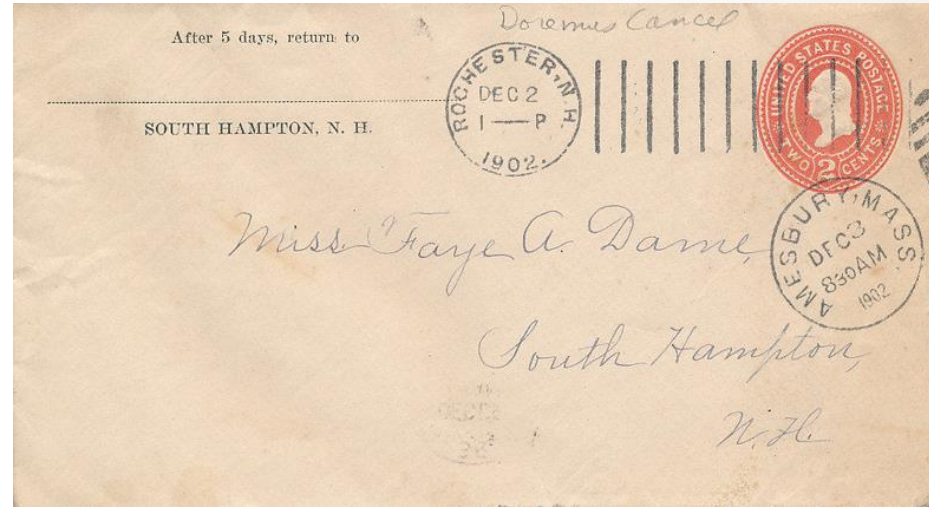 Doremus Cancel
After 5 days, return to
SOUTH HAMPTON, N. H.
ROCHESTER, N.H.
DEC 2
1 — P
1902.
UNITED STATES POSTAGE
TWO 2 CENTS
AMESBURY, MASS.
DEC 3
830AM
1902
Miss Faye A. Dame,
South Hampton,
N.H.